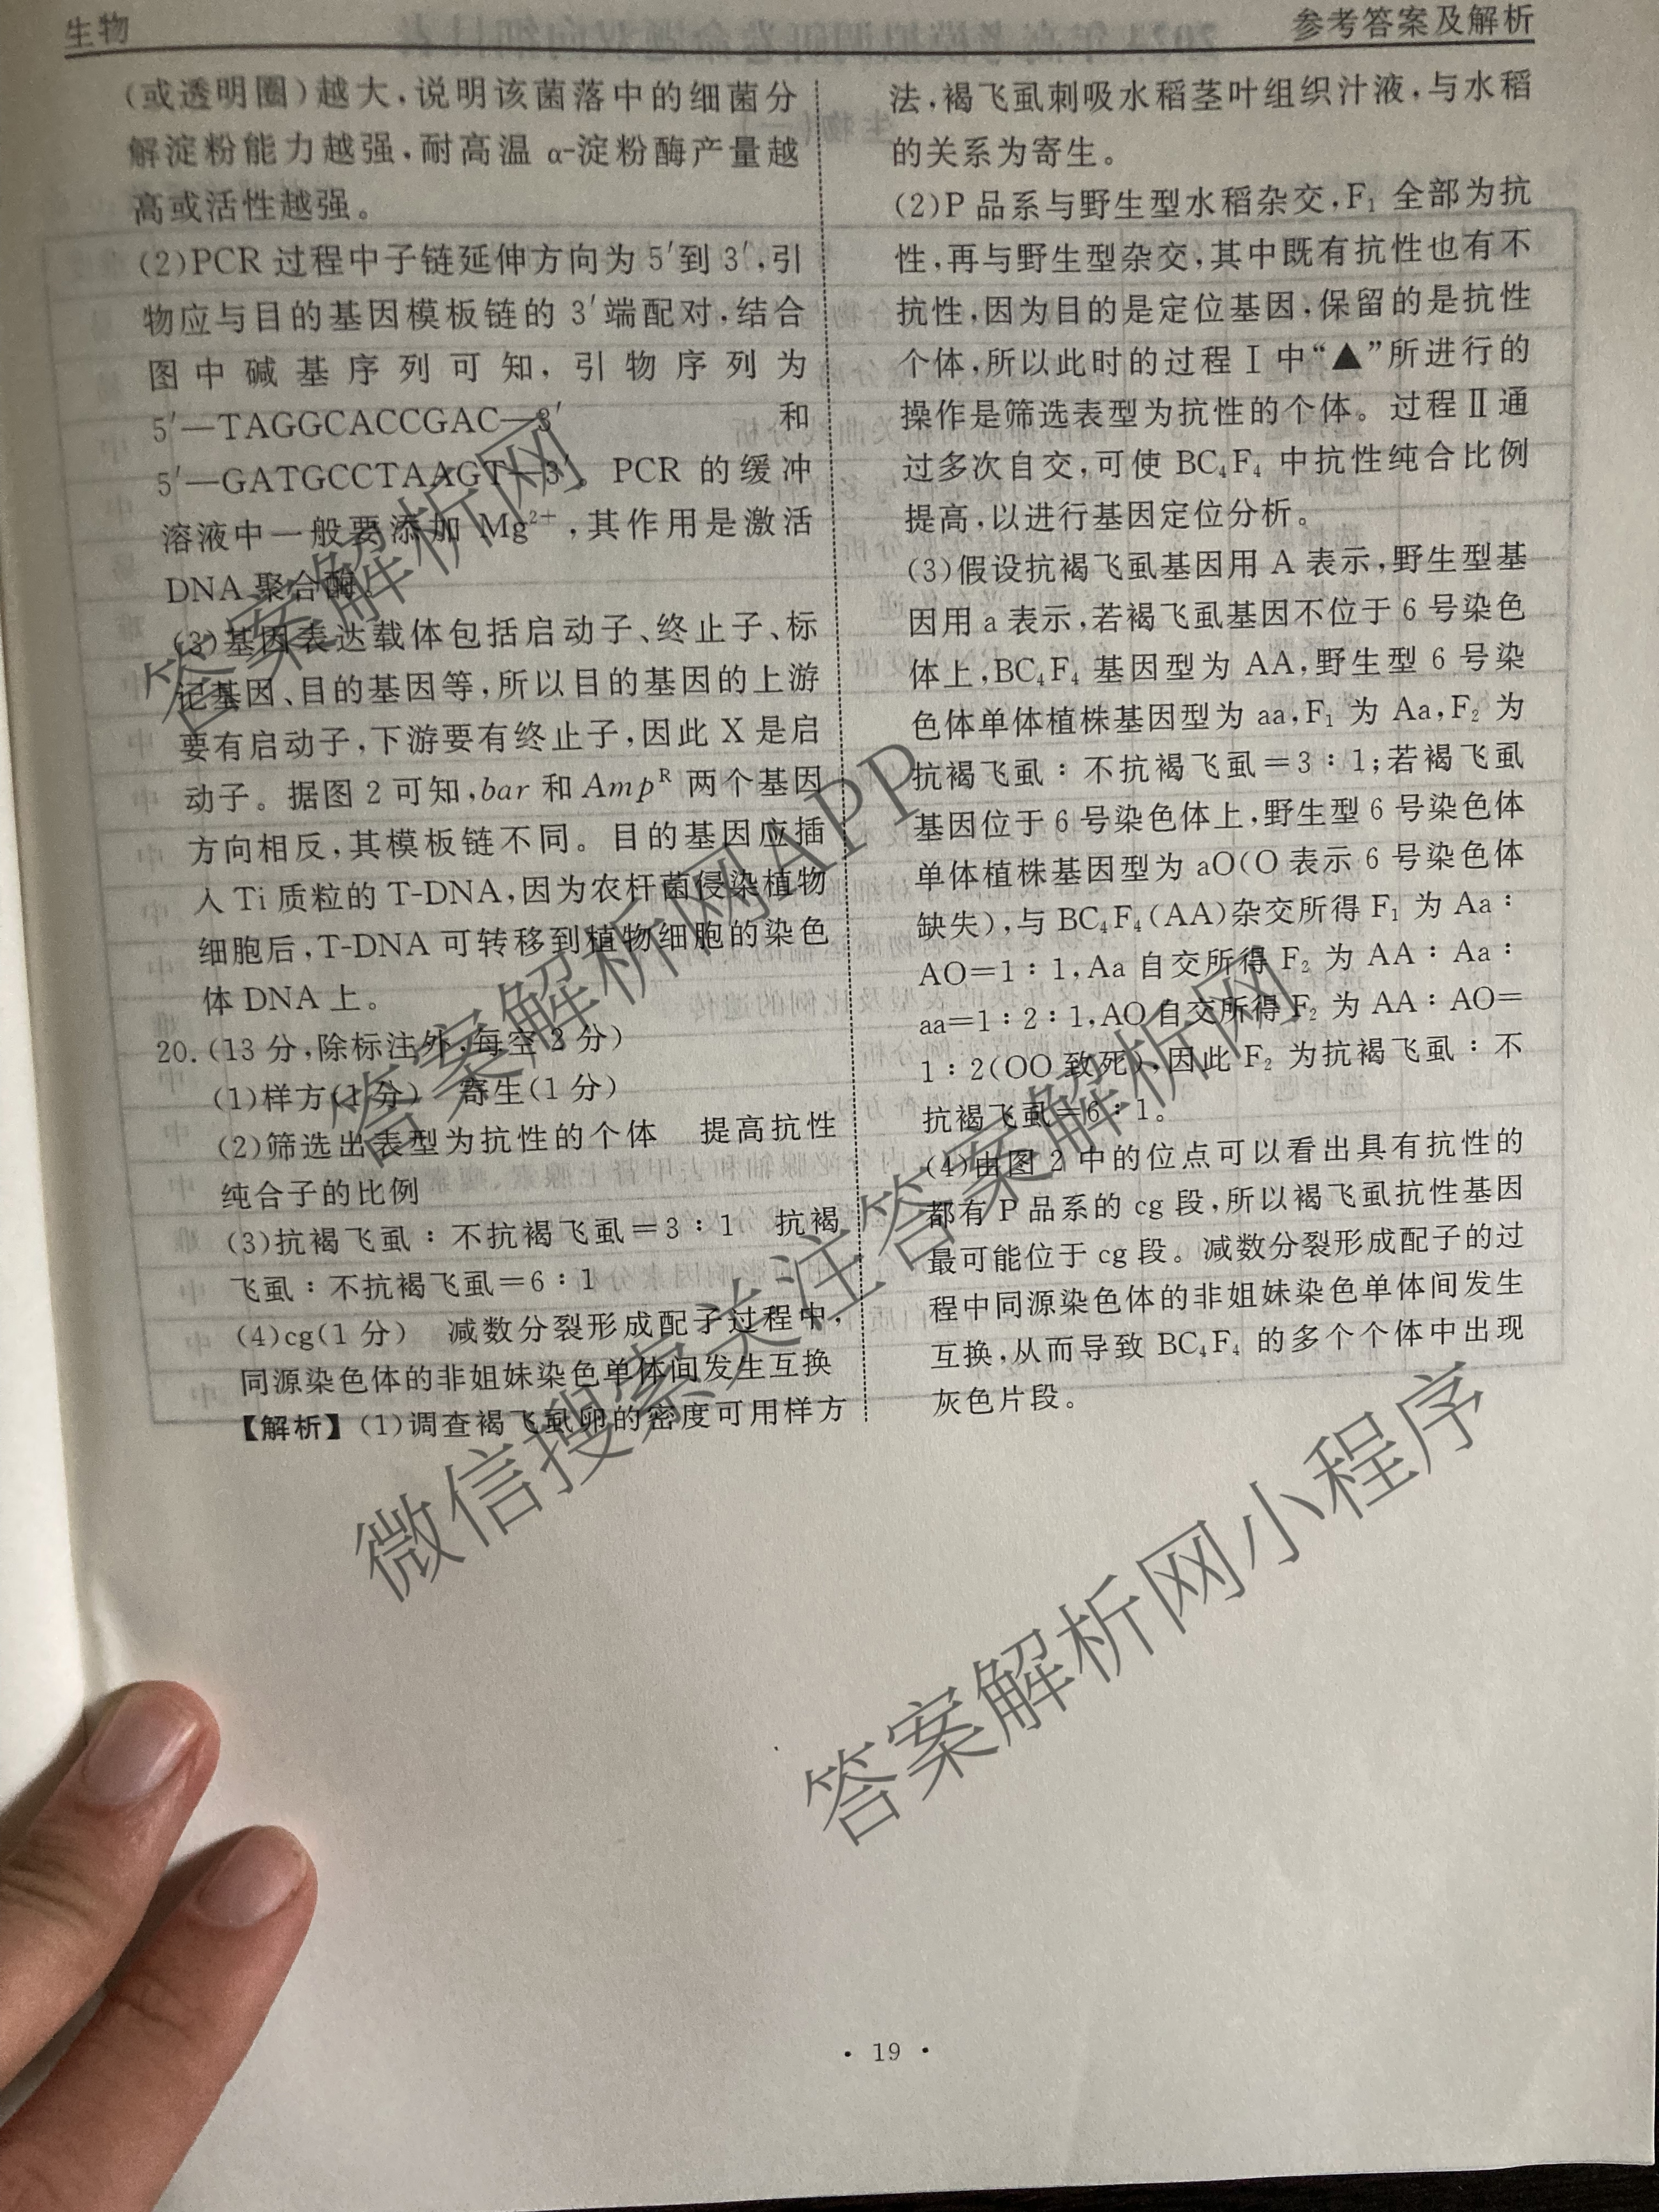 生物
参考答案及解析
(或透明圈)越大,说明该菌落中的细菌分
解淀粉能力越强,耐高温 α-淀粉酶产量越
高或活性越强。
(2)PCR 过程中子链延伸方向为 5′到 3′,引
物应与目的基因模板链的 3′端配对,结合
图中碱基序列可知,引物序列为
5′—TAGGCACCGAC—3′ 和
5′—GATGCCTAAGT—3′。PCR 的缓冲
溶液中一般要添加 Mg²⁺,其作用是激活
DNA 聚合酶。
(3)基因表达载体包括启动子、终止子、标
记基因、目的基因等,所以目的基因的上游
要有启动子,下游要有终止子,因此 X 是启
动子。据图 2 可知,bar 和 Ampᴿ 两个基因
方向相反,其模板链不同。目的基因应插
入 Ti 质粒的 T-DNA,因为农杆菌侵染植物
细胞后,T-DNA 可转移到植物细胞的染色
体 DNA 上。
20.(13 分,除标注外,每空 2 分)
(1)样方(1 分) 寄生(1 分)
(2)筛选出表型为抗性的个体 提高抗性
纯合子的比例
(3)抗褐飞虱∶不抗褐飞虱=3∶1 抗褐
飞虱∶不抗褐飞虱=6∶1
(4)cg(1 分) 减数分裂形成配子过程中,
同源染色体的非姐妹染色单体间发生互换
【解析】(1)调查褐飞虱卵的密度可用样方
法,褐飞虱刺吸水稻茎叶组织汁液,与水稻
的关系为寄生。
(2)P 品系与野生型水稻杂交,F₁ 全部为抗
性,再与野生型杂交,其中既有抗性也有不
抗性,因为目的是定位基因,保留的是抗性
个体,所以此时的过程Ⅰ中“▲”所进行的
操作是筛选表型为抗性的个体。过程Ⅱ通
过多次自交,可使 BC₄F₄ 中抗性纯合比例
提高,以进行基因定位分析。
(3)假设抗褐飞虱基因用 A 表示,野生型基
因用 a 表示,若褐飞虱基因不位于 6 号染色
体上,BC₄F₄ 基因型为 AA,野生型 6 号染
色体单体植株基因型为 aa,F₁ 为 Aa,F₂ 为
抗褐飞虱∶不抗褐飞虱=3∶1;若褐飞虱
基因位于 6 号染色体上,野生型 6 号染色体
单体植株基因型为 aO(O 表示 6 号染色体
缺失),与 BC₄F₄(AA)杂交所得 F₁ 为 Aa∶
AO=1∶1,Aa 自交所得 F₂ 为 AA∶Aa∶
aa=1∶2∶1,AO 自交所得 F₂ 为 AA∶AO=
1∶2(OO 致死),因此 F₂ 为抗褐飞虱∶不
抗褐飞虱=6∶1。
(4)由图 2 中的位点可以看出具有抗性的
都有 P 品系的 cg 段,所以褐飞虱抗性基因
最可能位于 cg 段。减数分裂形成配子的过
程中同源染色体的非姐妹染色单体间发生
互换,从而导致 BC₄F₄ 的多个个体中出现
灰色片段。
答案解析网
答案解析网APP
微信搜索关注答案解析网
答案解析网小程序
· 19 ·